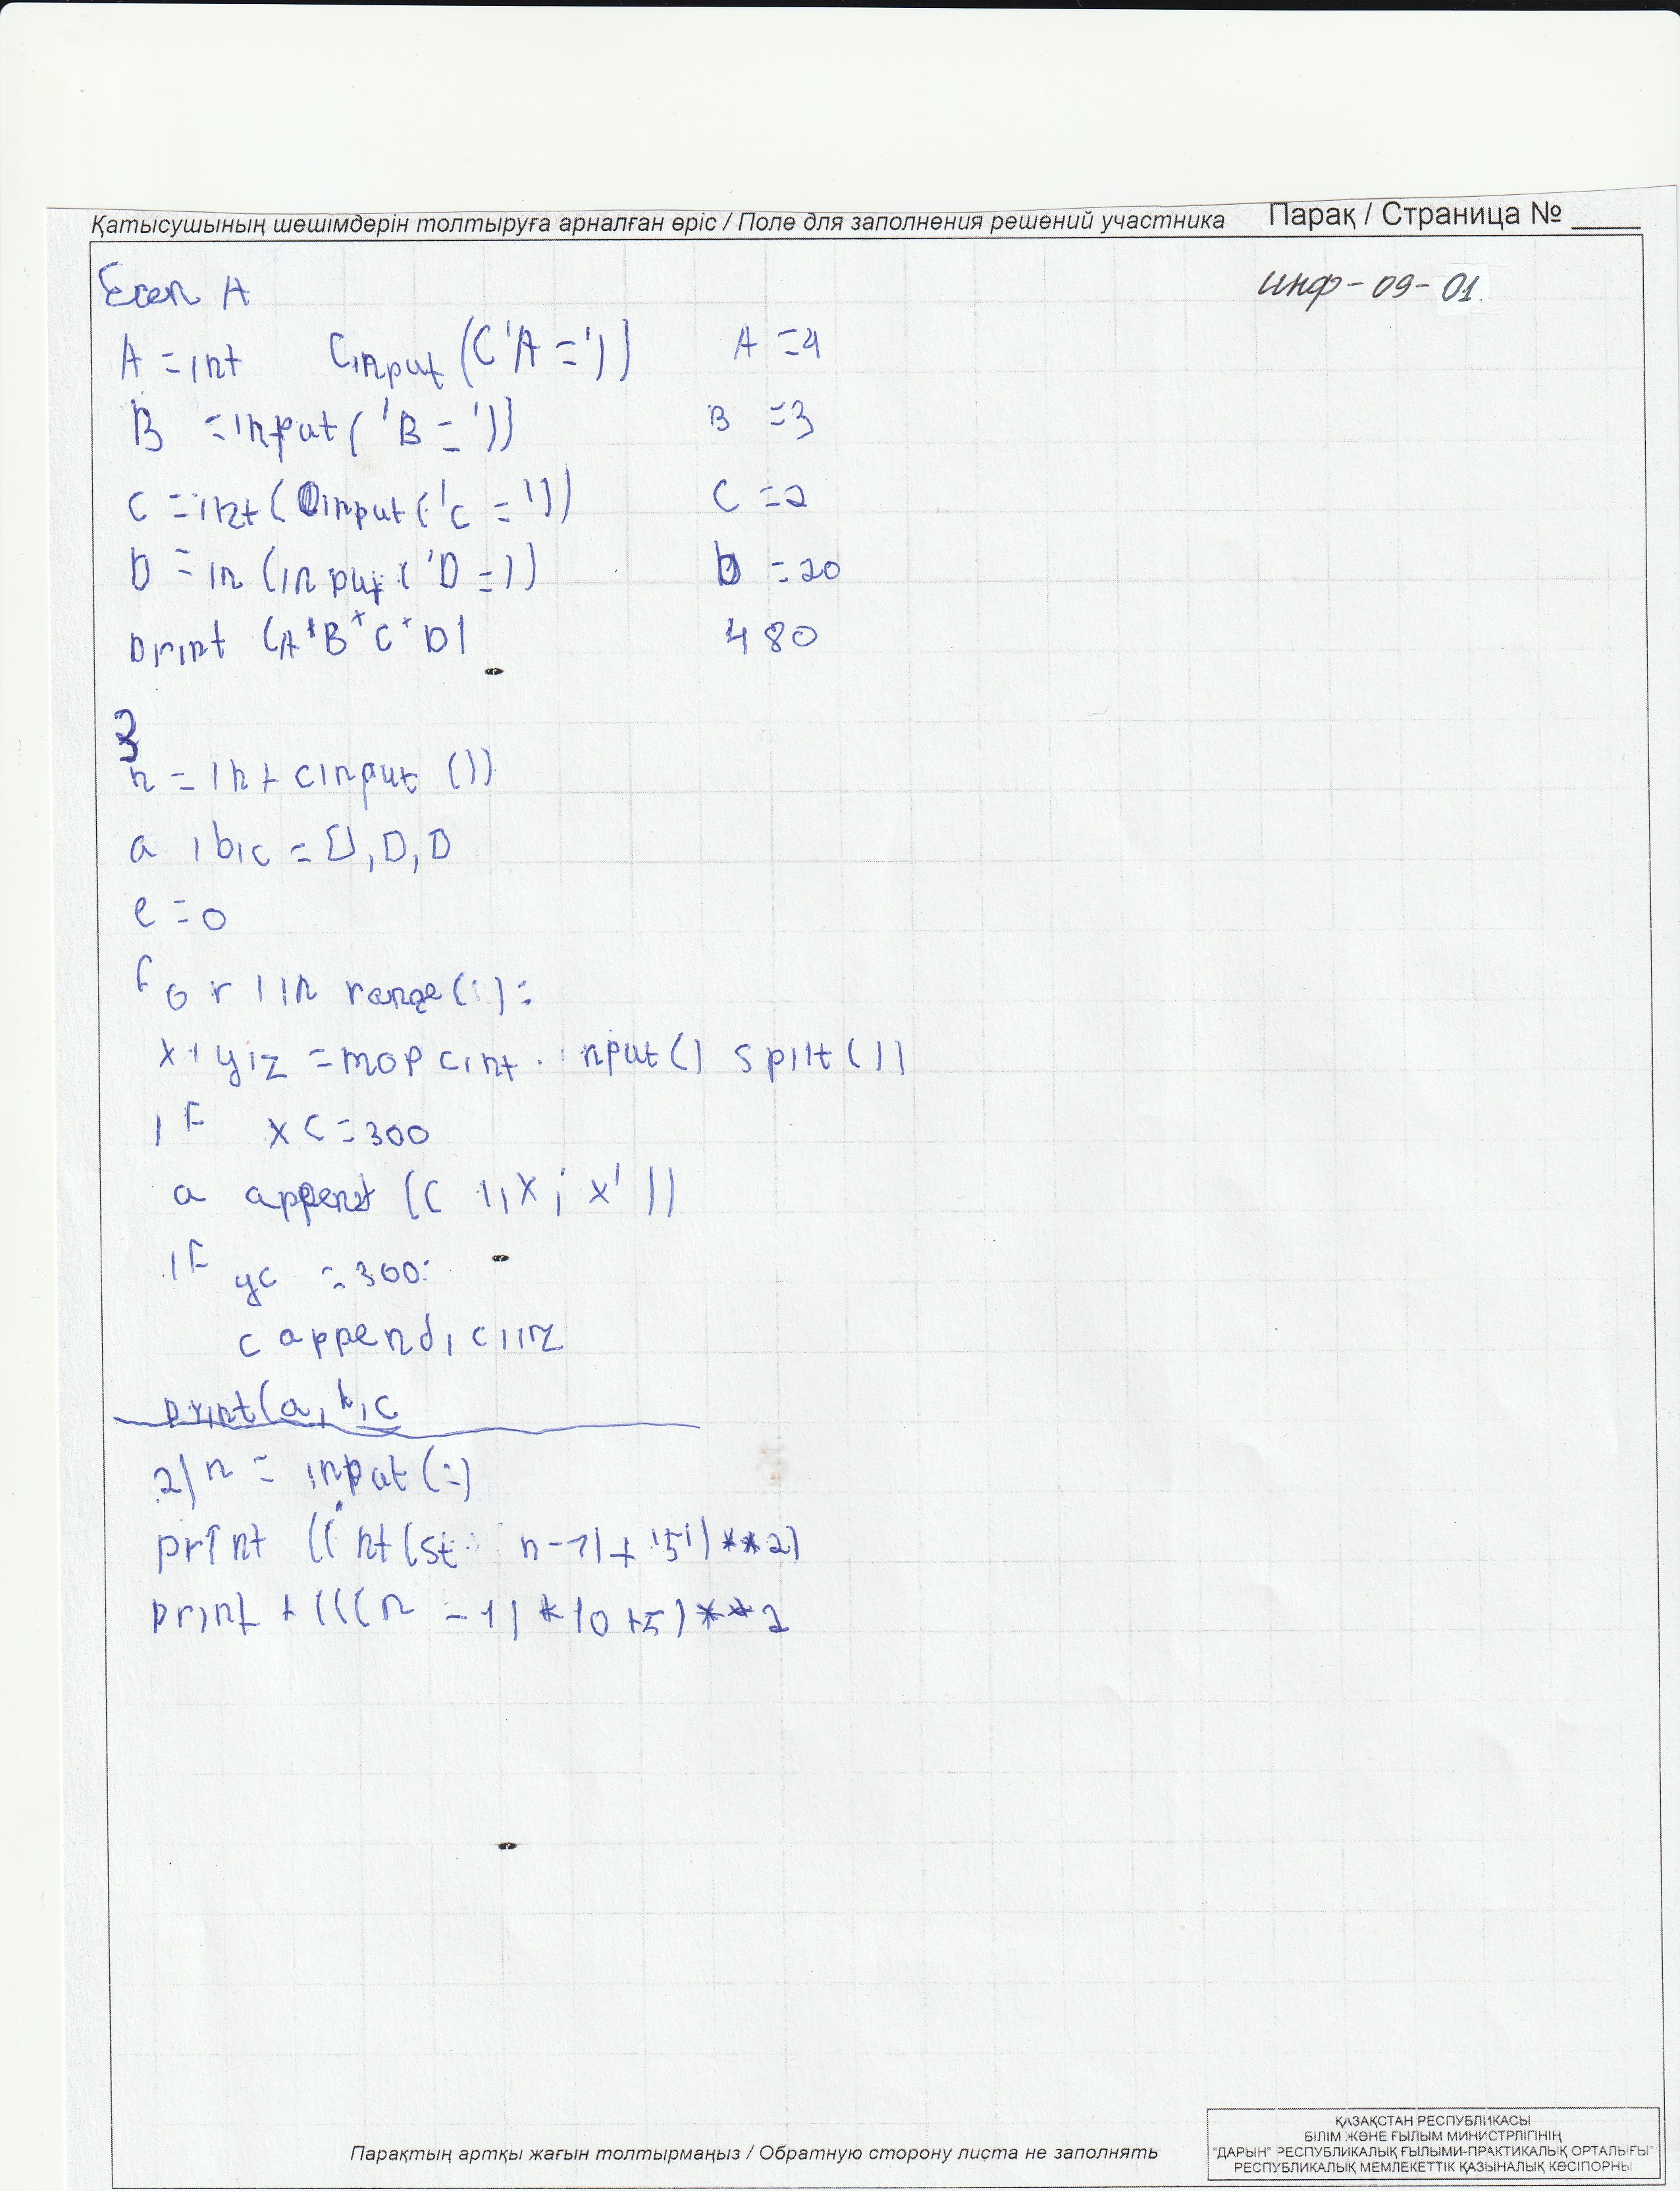 Қатысушының шешімдерін толтыруға арналған өріс / Поле для заполнения решений участника Парақ / Страница № ____
Есеп А
инф-09-01
A =int Cinput (C'A =')) A =4
B =input ('B =')) B =3
C =int (input ('c =')) C =2
D =in (input ('D =)) D =20
print (A*B*C*D) 480
3
n = int cinput ())
a ıbıc = [], D, D
e = 0
for ı in range(i):
x ı yız = mop cint. ınput() spılt())
ıf xc=300
a append ((c ıı x, x'))
ıf yc =300:
c append, c ıız
print(a, b, c
2) n = input(:)
print ((int(st n-1)+'5')**2)
print + (((n -1)*10+5)**2
Парақтың артқы жағын толтырмаңыз / Обратную сторону листа не заполнять
ҚАЗАҚСТАН РЕСПУБЛИКАСЫ
БІЛІМ ЖӘНЕ ҒЫЛЫМ МИНИСТРЛІГІНІҢ
"ДАРЫН" РЕСПУБЛИКАЛЫҚ ҒЫЛЫМИ-ПРАКТИКАЛЫҚ ОРТАЛЫҒЫ"
РЕСПУБЛИКАЛЫҚ МЕМЛЕКЕТТІК ҚАЗЫНАЛЫҚ КӘСІПОРНЫ